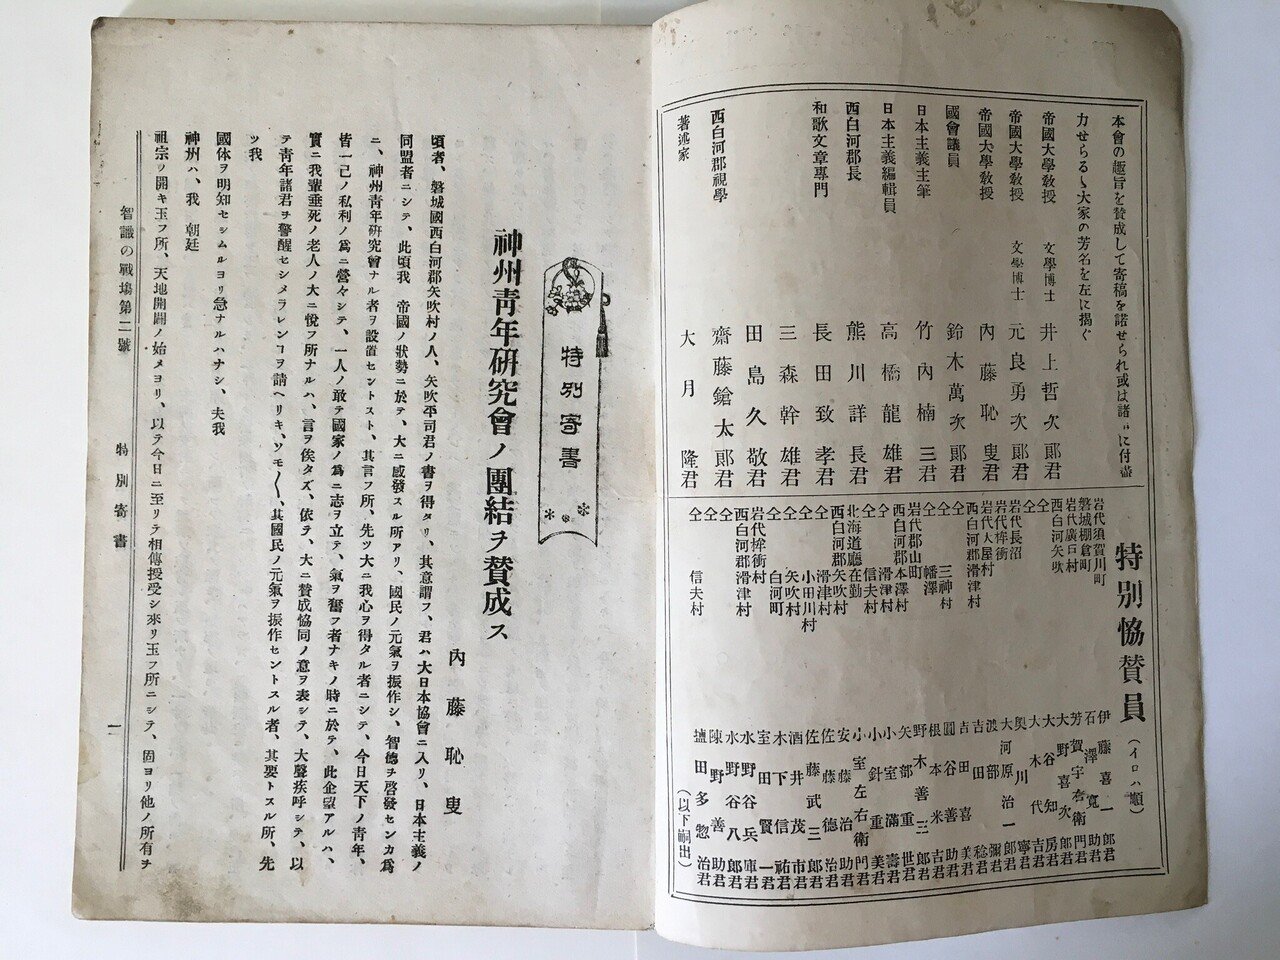 本會の趣旨を賛成して寄稿を諾せられ或は諸〻に付盡
力せらるゝ大家の芳名を左に揭ぐ
帝國大學敎授 文學博士 井上哲次郞君
帝國大學敎授 文學博士 元良勇次郞君
帝國大學敎授 內藤恥叟君
國會議員 鈴木萬次郞君
日本主義主筆 竹內楠三君
日本主義編輯員 高橋龍雄君
西白河郡長 熊川詳長君
和歌文章專門 長田致孝君
三森幹雄君
田島久敬君
西白河郡視學 齋藤鎗太郞君
著述家 大月隆君
特別恊賛員(イロハ順)
岩代須賀川町 伊藤喜一郞君
磐城棚倉町 石澤寬助君
岩代廣戸村 芳賀宇右衛門君
西白河矢吹 大野喜次郞君
仝 大谷知房君
仝 大木代吉君
岩代長沼 奧川寧君
岩代桙衝 大河原治一郞君
岩代人屋村 渡部彌君
西白河郡滑津村 吉田稔君
仝 三神村 吉田喜美君
仝 幡澤 圓谷善助君
岩代郡山町 根本米吉君
西白河郡本澤村 野木善三郞君
仝 滑津村 矢部重世君
仝 信夫村 小室滿壽君
北海道廳在勤 小針重美君
西白河郡矢吹村 小室左右衛門君
仝 滑津村 安藤治助君
仝 小田川村 佐藤德治君
仝 矢吹村 佐藤武三郞君
仝 白河町 酒井茂市君
岩代桙衝村 木下信祐君
西白河郡滑津村 室田賢一君
仝 水野谷兵庫君
仝 水野谷八郞君
仝 陳野善助君
仝 信夫村 鹽田多惣治君
(以下嗣出)
特別寄書
神州靑年硏究會ノ團結ヲ賛成ス
內藤恥叟
頃者、磐城國西白河郡矢吹村ノ人、矢吹平司君ノ書ヲ得タリ、其意謂フ、君ハ大日本協會ニ入リ、日本主義ノ
同盟者ニシテ、此頃我 帝國ノ狀勢ニ於テ、大ニ感發スル所アリ、國民ノ元氣ヲ振作シ、智德ヲ啓發センカ爲
ニ、神州靑年硏究會ナル者ヲ設置セントスト、其言フ所、先ツ大ニ我心ヲ得タル者ニシテ、今日天下ノ靑年、
皆一己ノ私利ノ爲ニ營々シテ、一人ノ敢テ國家ノ爲ニ志ヲ立テ、氣ヲ奮フ者ナキノ時ニ於テ、此企望アルハ、
實ニ我輩垂死ノ老人ノ大ニ悅フ所ナルハ、言ヲ俟タズ、依テ、大ニ賛成協同ノ意ヲ表シテ、大聲疾呼シテ、以
テ靑年諸君ヲ警醒セシメラレンコヲ請ヘリキ、ソモ〱、其國民ノ元氣ヲ振作セントスル者、其要トスル所、先
ッ我
國体ヲ明知セシムルヨリ急ナルハナシ、夫我
神州ハ、我 朝廷
祖宗ノ開キ玉フ所、天地開闢ノ始メヨリ、以テ今日ニ至リテ相傳授受シ來リ玉フ所ニシテ、固ヨリ他ノ所有ヂ
智識の戰塲第二號 特別寄書 一